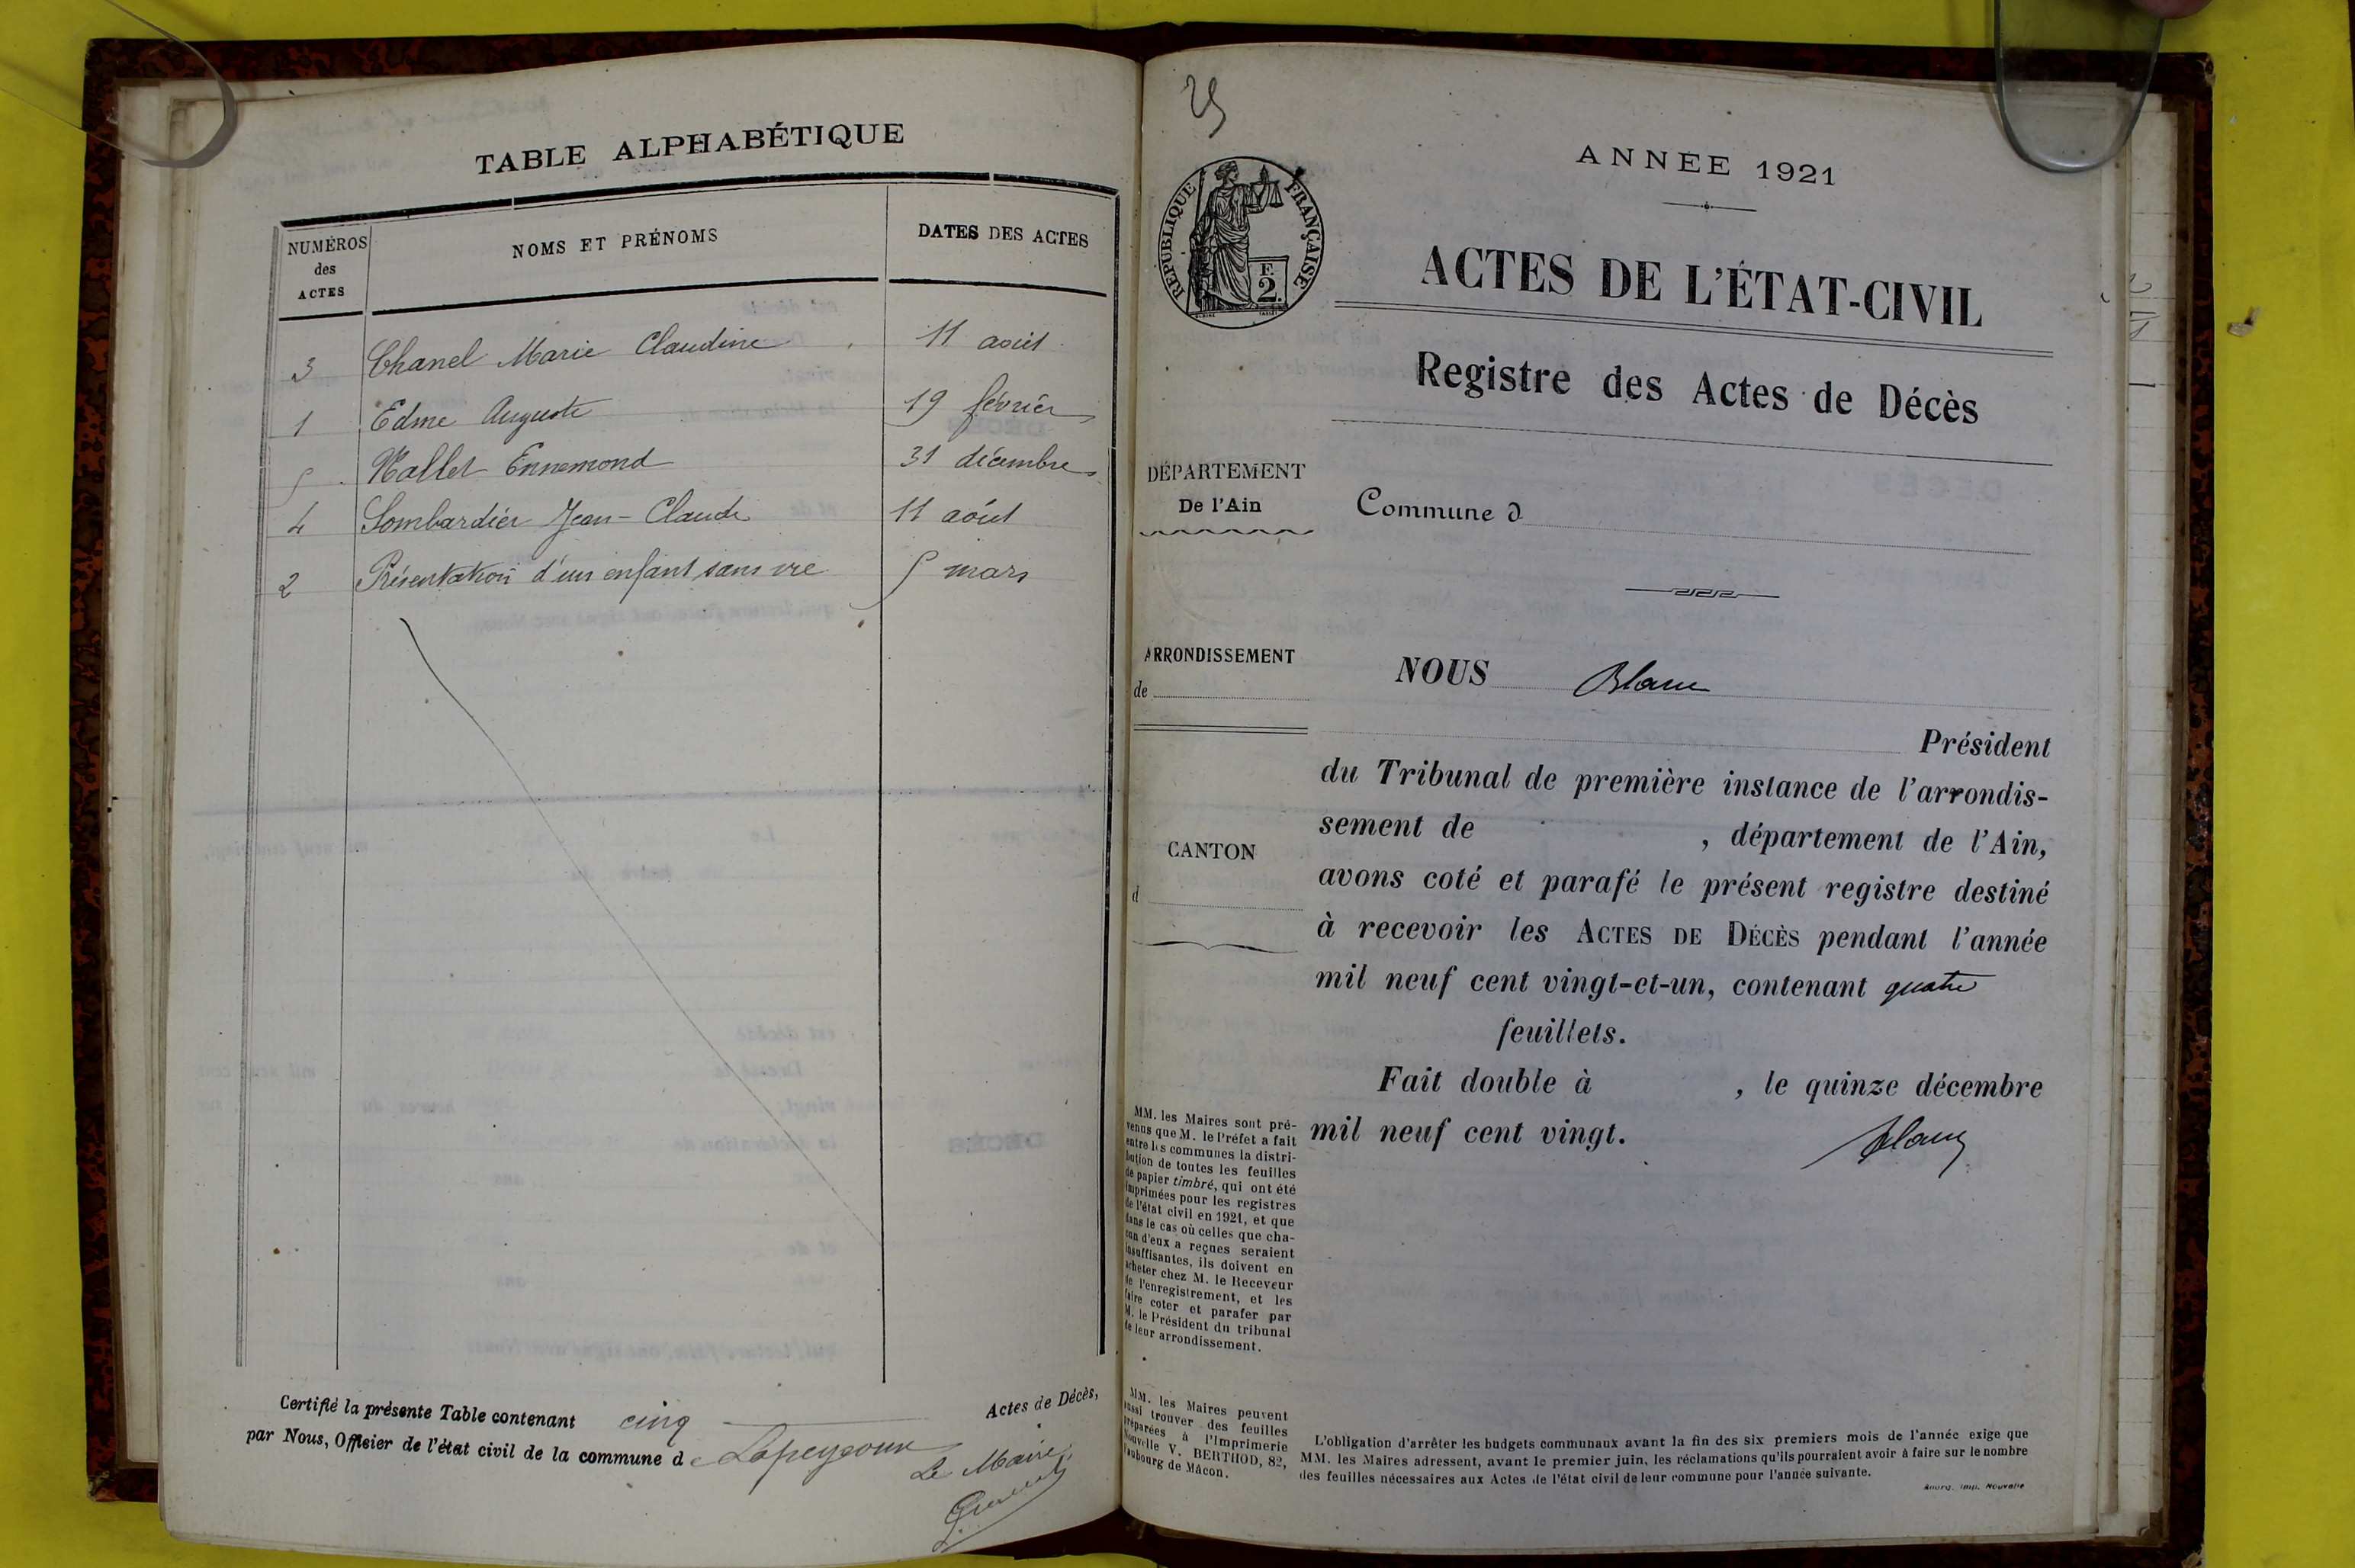 TABLE ALPHABÉTIQUE
NUMÉROS
des
ACTES
NOMS ET PRÉNOMS
DATES DES ACTES
3 Chanel Marie Claudine 11 août
1 Edme Auguste 19 février
5 Hallet Ennemond 31 décembre
4 Lombardier Jean-Claude 11 août
2 Présentation d'un enfant sans vie 5 mars
Certifié la présente Table contenant cinq Actes de Décès,
par Nous, Officier de l'état civil de la commune de Lapeyrouse
Le Maire,
ANNÉE 1921
RÉPUBLIQUE FRANÇAISE
F.
2.
ACTES DE L'ÉTAT-CIVIL
Registre des Actes de Décès
DÉPARTEMENT
De l'Ain
Commune d
ARRONDISSEMENT
de
CANTON
d
NOUS Blanc
Président
du Tribunal de première instance de l'arrondis-
sement de , département de l'Ain,
avons coté et parafé le présent registre destiné
à recevoir les ACTES DE DÉCÈS pendant l'année
mil neuf cent vingt-et-un, contenant quatre
feuillets.
Fait double à , le quinze décembre
mil neuf cent vingt.
Blanc
MM. les Maires sont pré-
venus que M. le Préfet a fait
entre les communes la distri-
bution de toutes les feuilles
de papier timbré, qui ont été
imprimées pour les registres
de l'état civil en 1921, et que
dans le cas où celles que cha-
cun d'eux a reçues seraient
insuffisantes, ils doivent en
acheter chez M. le Receveur
de l'enregistrement, et les
faire coter et parafer par
M. le Président du tribunal
de leur arrondissement.
MM. les Maires peuvent
aussi trouver des feuilles
préparées à l'Imprimerie
Nouvelle V. BERTHOD, 82,
faubourg de Mâcon.
L'obligation d'arrêter les budgets communaux avant la fin des six premiers mois de l'année exige que
MM. les Maires adressent, avant le premier juin, les réclamations qu'ils pourraient avoir à faire sur le nombre
des feuilles nécessaires aux Actes de l'état civil de leur commune pour l'année suivante.
Bourg. Imp. Nouvelle